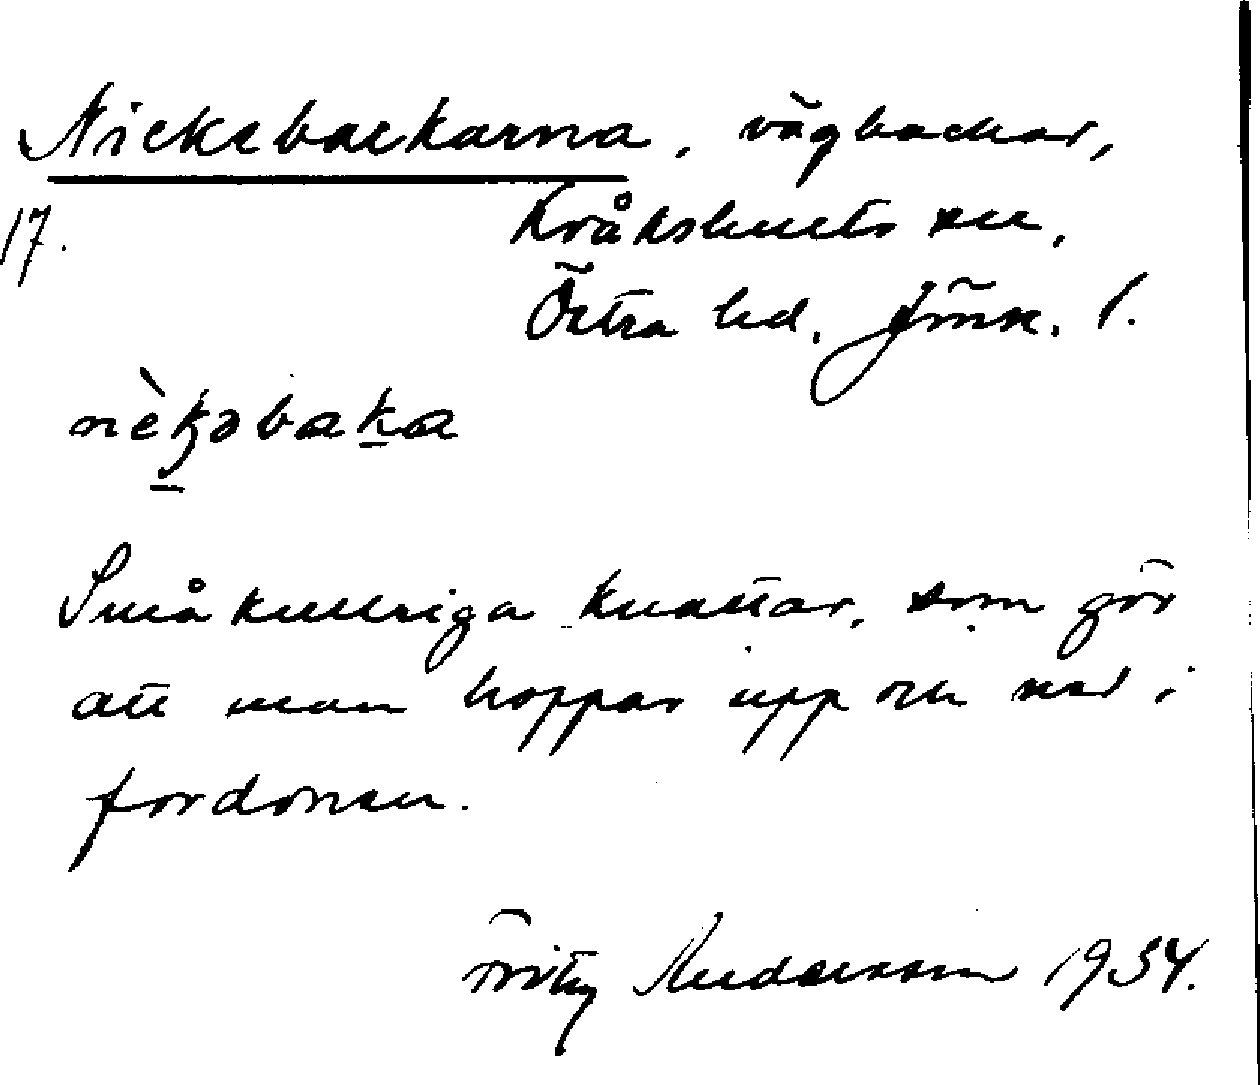 Nickebackarna, vägbackar,
17. Kråkshults sn,
Östra hd, Jönk. l.
nèkəbaka
Små kullriga knattar, som gör
att man hoppar upp och ned i
fordonen.
Fritz Andersson 1934.